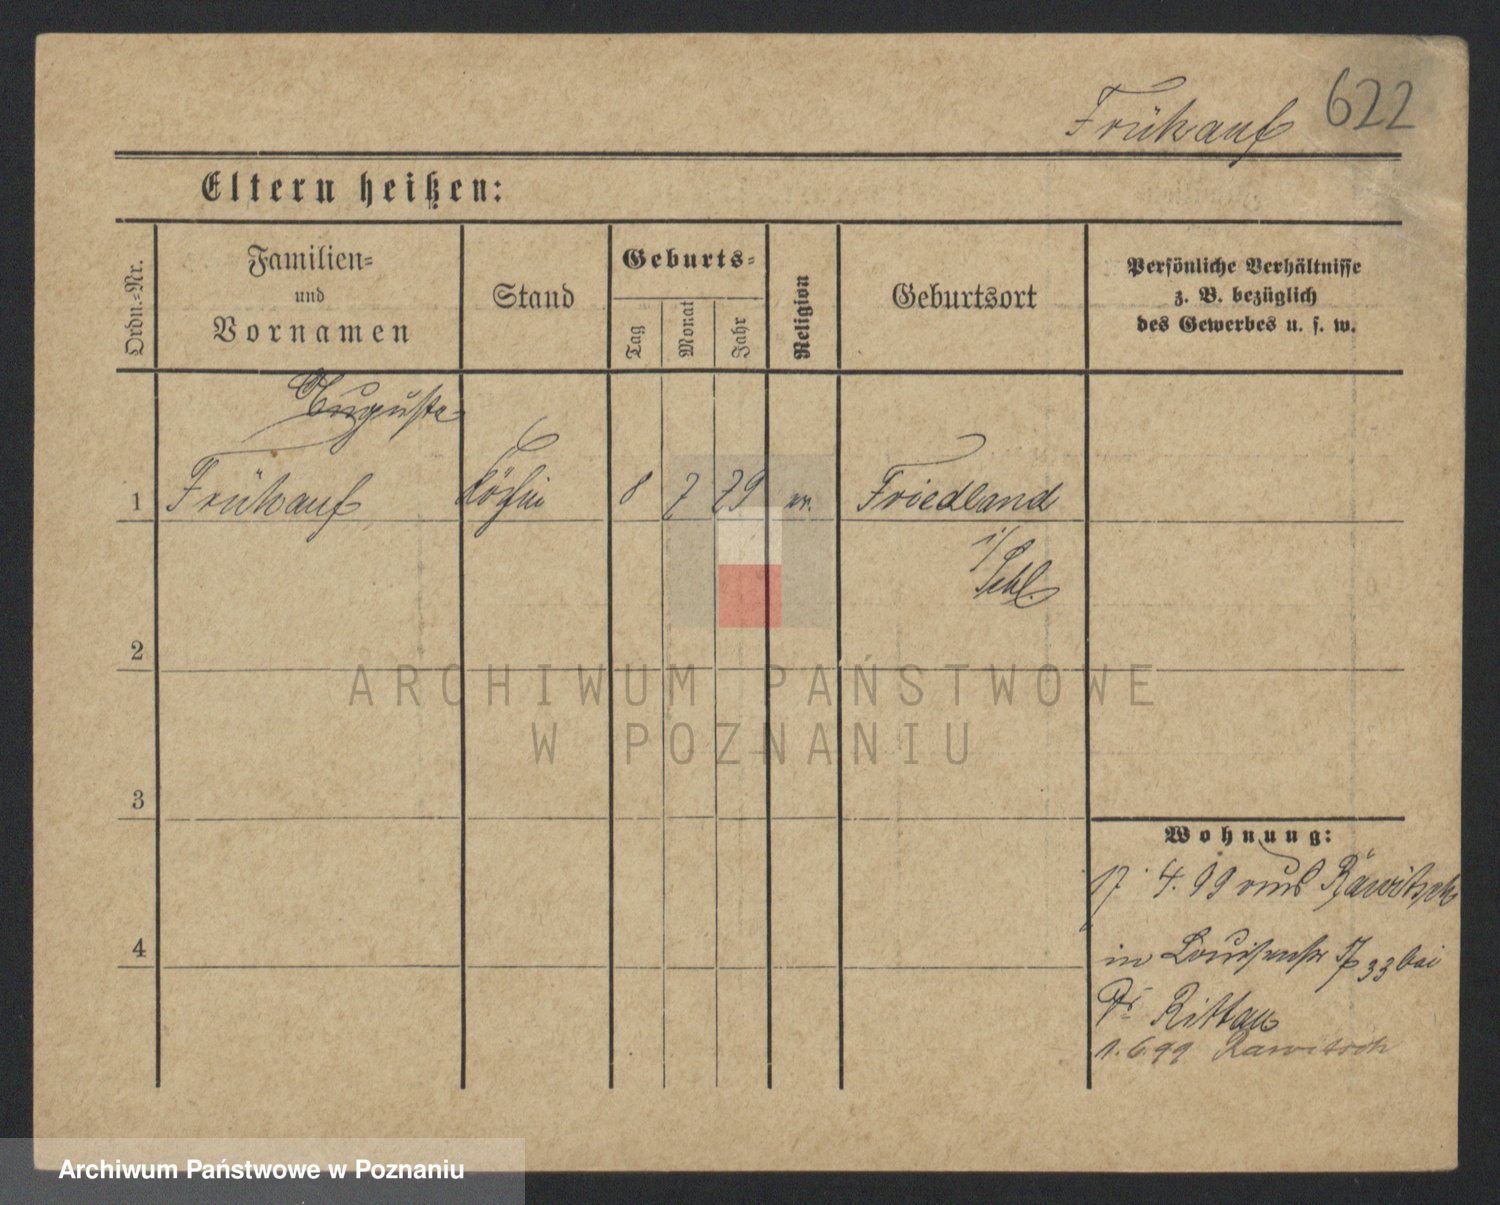 Frühauf 622
Eltern heißen:
Ordn.=Nr.
Familien=
und
Vornamen
Stand
Geburts=
Tag
Monat
Jahr
Religion
Geburtsort
Persönliche Verhältnisse
z. B. bezüglich
des Gewerbes u. s. w.
Auguste
1 Frühauf Köchin 8 7 79 ev. Friedland
i/Schl.
2
ARCHIWUM PAŃSTWOWE
W POZNANIU
3
Wohnung:
17. 4. 99 aus Rawitsch
4
in Louisenstr 17 33 bei
Dr Rittau
1.6.99 Rawitsch
Archiwum Państwowe w Poznaniu